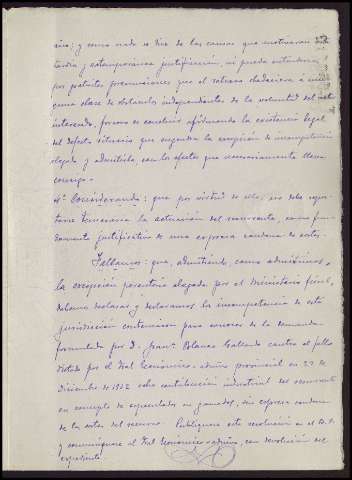 sino; y como nada se dice de las causas que motivaran tan
tardía y extemporánea justificación, ni puede entenderse,
por patentes presunciones que el retraso obedeciera a ninguna
clase de obstáculo independiente de la voluntad del
interesado, forzoso es concluir afirmando la existencia legal
del defecto que engendra la excepción de incompetencia
alegada y admitida, con los efectos que necesariamente lleva
consigo.
4º Considerando: que por virtud de ello, no debe reputarse
temeraria la actuación del recurrente, como fundamento
justificativo de una expresa condena de costas.
Fallamos: que, admitiendo, como admitimos,
la excepción perentoria alegada por el Ministerio fiscal,
debemos declarar y declaramos la incompetencia de esta
jurisdicción contenciosa para conocer de la demanda
formulada por D. Juan Polanco Gallardo contra el fallo
dictado por el Tral Económico-admvo provincial en 29 de
Diciembre de 1932 sobre contribución industrial del recurrente
en concepto de especulador en ganados, sin expresa condena
de las costas del recurso. Publíquese esta resolución en el B.O.
y comuníquese al Tral Económico-admvo, con devolución del
expediente.